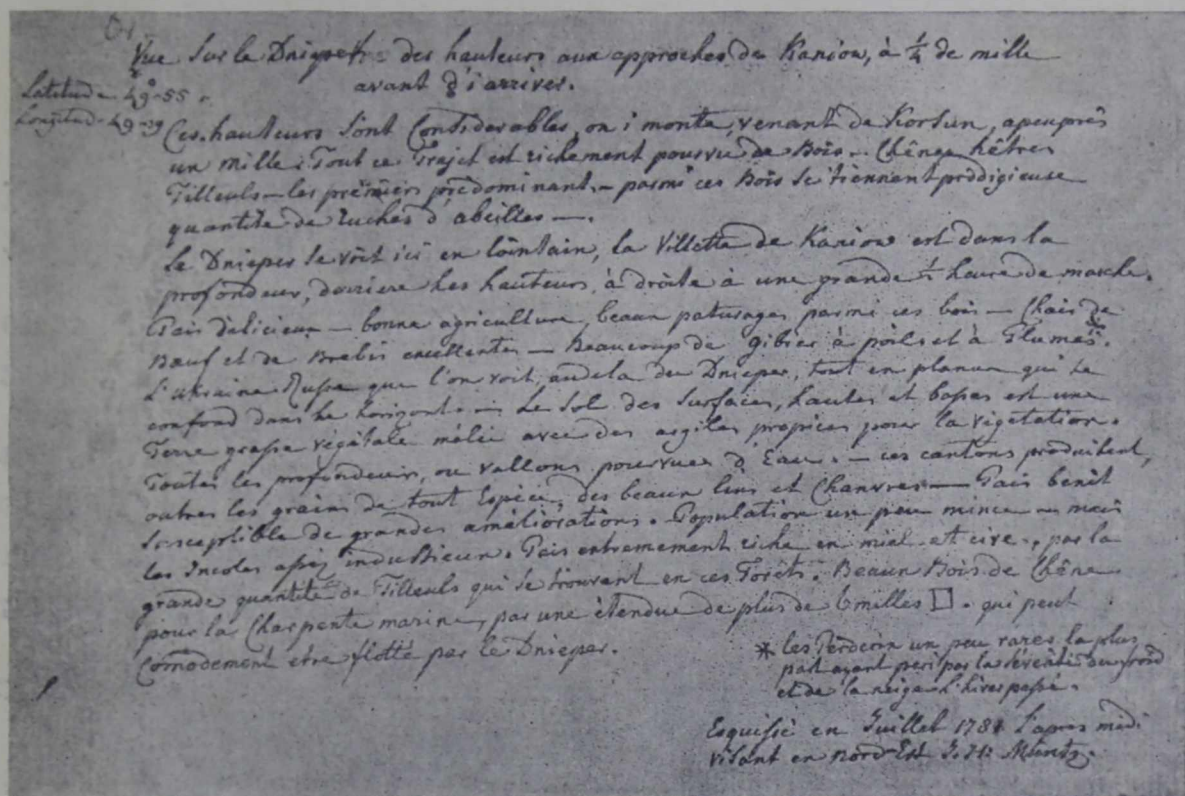 Vue sur le Dnieper des hauteurs aux approches de Kaniow, à 1/4 de mille
avant d'i arriver.
Latitud - 49°-55.
Longitud - 49-29
Ces hauteurs sont Considerables, on i monte, venant de Korsun, apeuprès
un mille. Tout ce Trajet est richement pourvu de Bois. - Chênes hêtres
Tilleuls - les premiers prédominant. - parmi ces Bois se tiennent prodigieuse
quantité de ruches d'abeilles -.
Le Dnieper se voit ici en lointain, la Villette de Kaniow est dans la
profondeur, derriere les hauteurs, à droite à une grande 1/2 heure de marche.
Païs délicieux - bonne agriculture, beaux paturages parmi ces bois - Chais de
Bœuf et de Brebis excellentes - Beaucoup de gibier à poils et à Plumes*.
L'Ukraine Russe que l'on voit, audela du Dnieper, tout en planum qui se
confond dans le horizont. - Le sol des surfaces, hautes et basses est une
Terre grasse végétale mêlée avec des argiles propices pour la végétation.
Toutes les profondeurs, ou vallons pourvues d'Eau. - ces cantons produisent,
outres les grains de tout Espèce, des beaux lins et Chanvres - Païs benit
susceptible de grandes améliorations. Population un peu mince - mais
les Incoles assez industrieux. Païs extremement riche en miel et cire, par la
grande quantité de Tilleuls qui se trouvent en ces Forêts. Beaux Bois de Chêne
pour la Charpente marine, par une étendue de plus de 6 milles □. qui peut
Comodement etre flotté par le Dnieper.
* les Perdrix un peu rares la plus
part ayant peri par la sévérité du froid
et de la neige l'hiver passé.
Esquissé en Juillet 1781 l'apres midi
visant en Nord-Est J. H. Müntz.